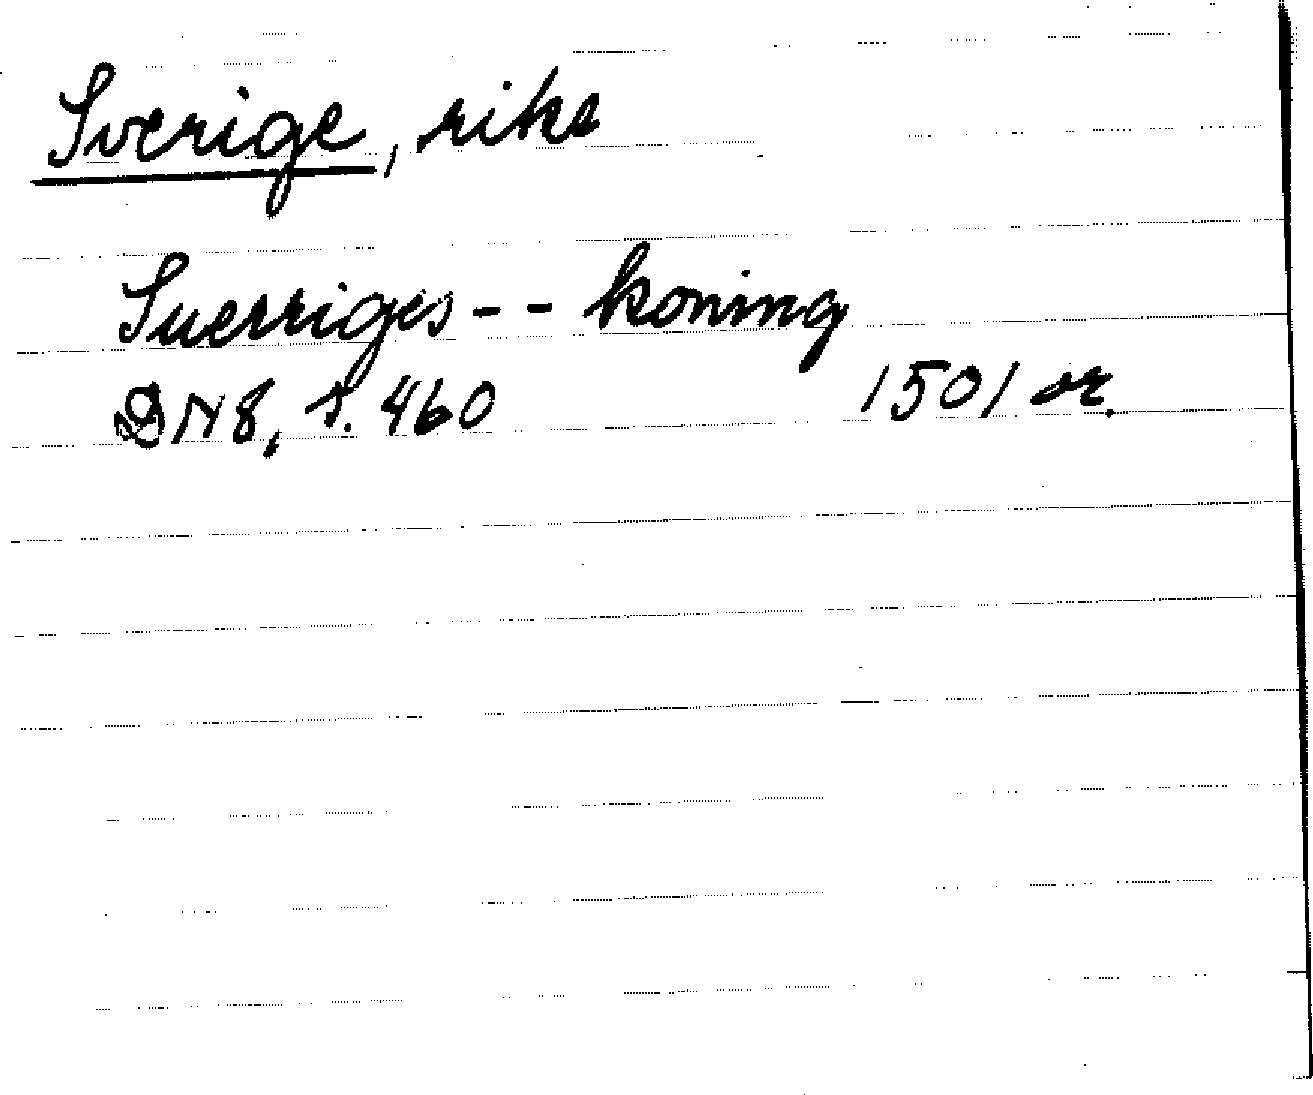 Sverige, rike
Suerriges -- koning
DN 8, s. 460 1501 or.